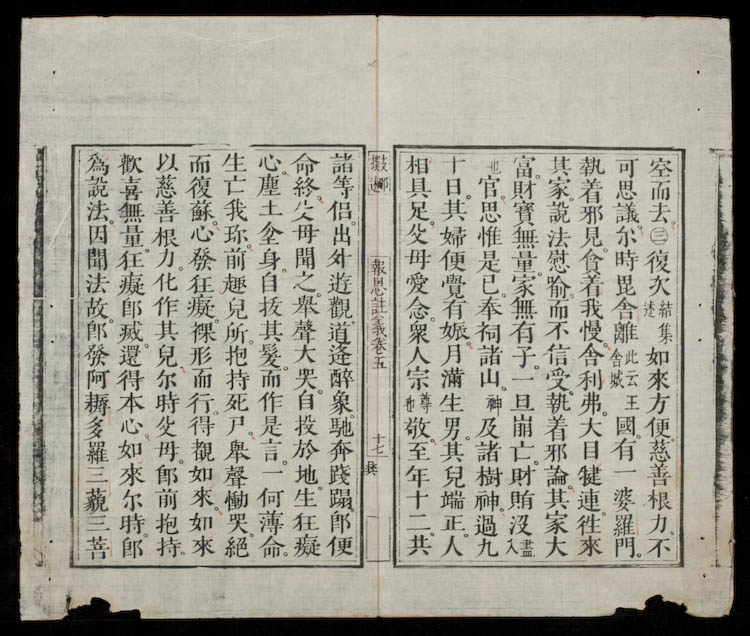 空而去。㊂復次結集述如來方便。慈善根力。不
可思議。尒時毘舍離此云王舍城國。有一婆羅門。
執着邪見。貪着我慢。舍利弗。大目揵連。徃來
其家。說法慰喻。而不信受。執着邪論。其家大
富。財寶無量。家無有子。一旦崩亡。財賄沒盡入
也官。思惟是已。奉祠諸山神及諸樹神。過九
十日。其婦便覺有娠。月滿生男。其兒端正。人
相具足。父母愛念。衆人宗尊也敬。至年十二。共
報恩註義卷五
十七
諸等侶。出外遊觀。道逢醉象。馳奔踐蹋。卽便
命終。父母聞之。舉聲大哭。自投於地。生狂癡
心。塵土坌身。自拔其髮。而作是言。一何薄命。
生亡我珎。前趣兒所。抱持死尸。舉聲慟哭。絕
而復蘇。心發狂癡。裸形而行。得覩如來。如來
以慈善根力。化作其兒。尒時父母。卽前抱持。
歡喜無量。狂癡卽滅。還得本心。如來尒時。卽
爲說法。因聞法故。卽發阿耨多羅三藐三菩